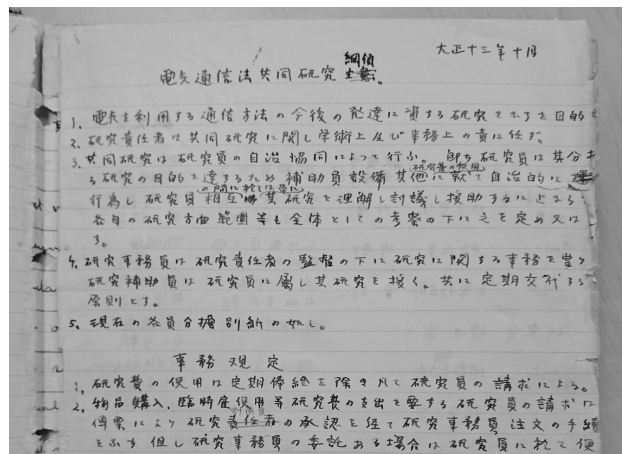 大正十三年十月
電気通信法共同研究 綱領
1. 電気を利用する通信方法の今後の発達に資する研究をなすを目的と
2. 研究責任者は共同研究に関し学術上及び事務上の責に任ず。
3. 共同研究は研究員の自治協同によって行ふ。即ち研究員は其分す
る研究の目的を達するため補助員設備研究費の使用其他に就て自治的に
行為し研究員相互の間に於ては常に其研究を理解し討議し援助するにより
各自の研究方面範囲等も全体としての考察の下に之を定め又は
す。
4. 研究事務員は研究責任者の監督の下に研究に関する事務を掌り
研究補助員は研究員に属し其研究を援く。共に定期交代する
原則とす。
5. 現在の各員分擔別紙の如し。
事務規定
1. 研究費の使用は定期俸給を除き凡て研究員の請求による。
2. 物品購入、臨時雇使用等研究費の支出を要する研究員の請求は
傳票により研究責任者の承認を経て研究事務員注文の手続
をなす 但し研究事務員の委託ある場合は研究員に於て便